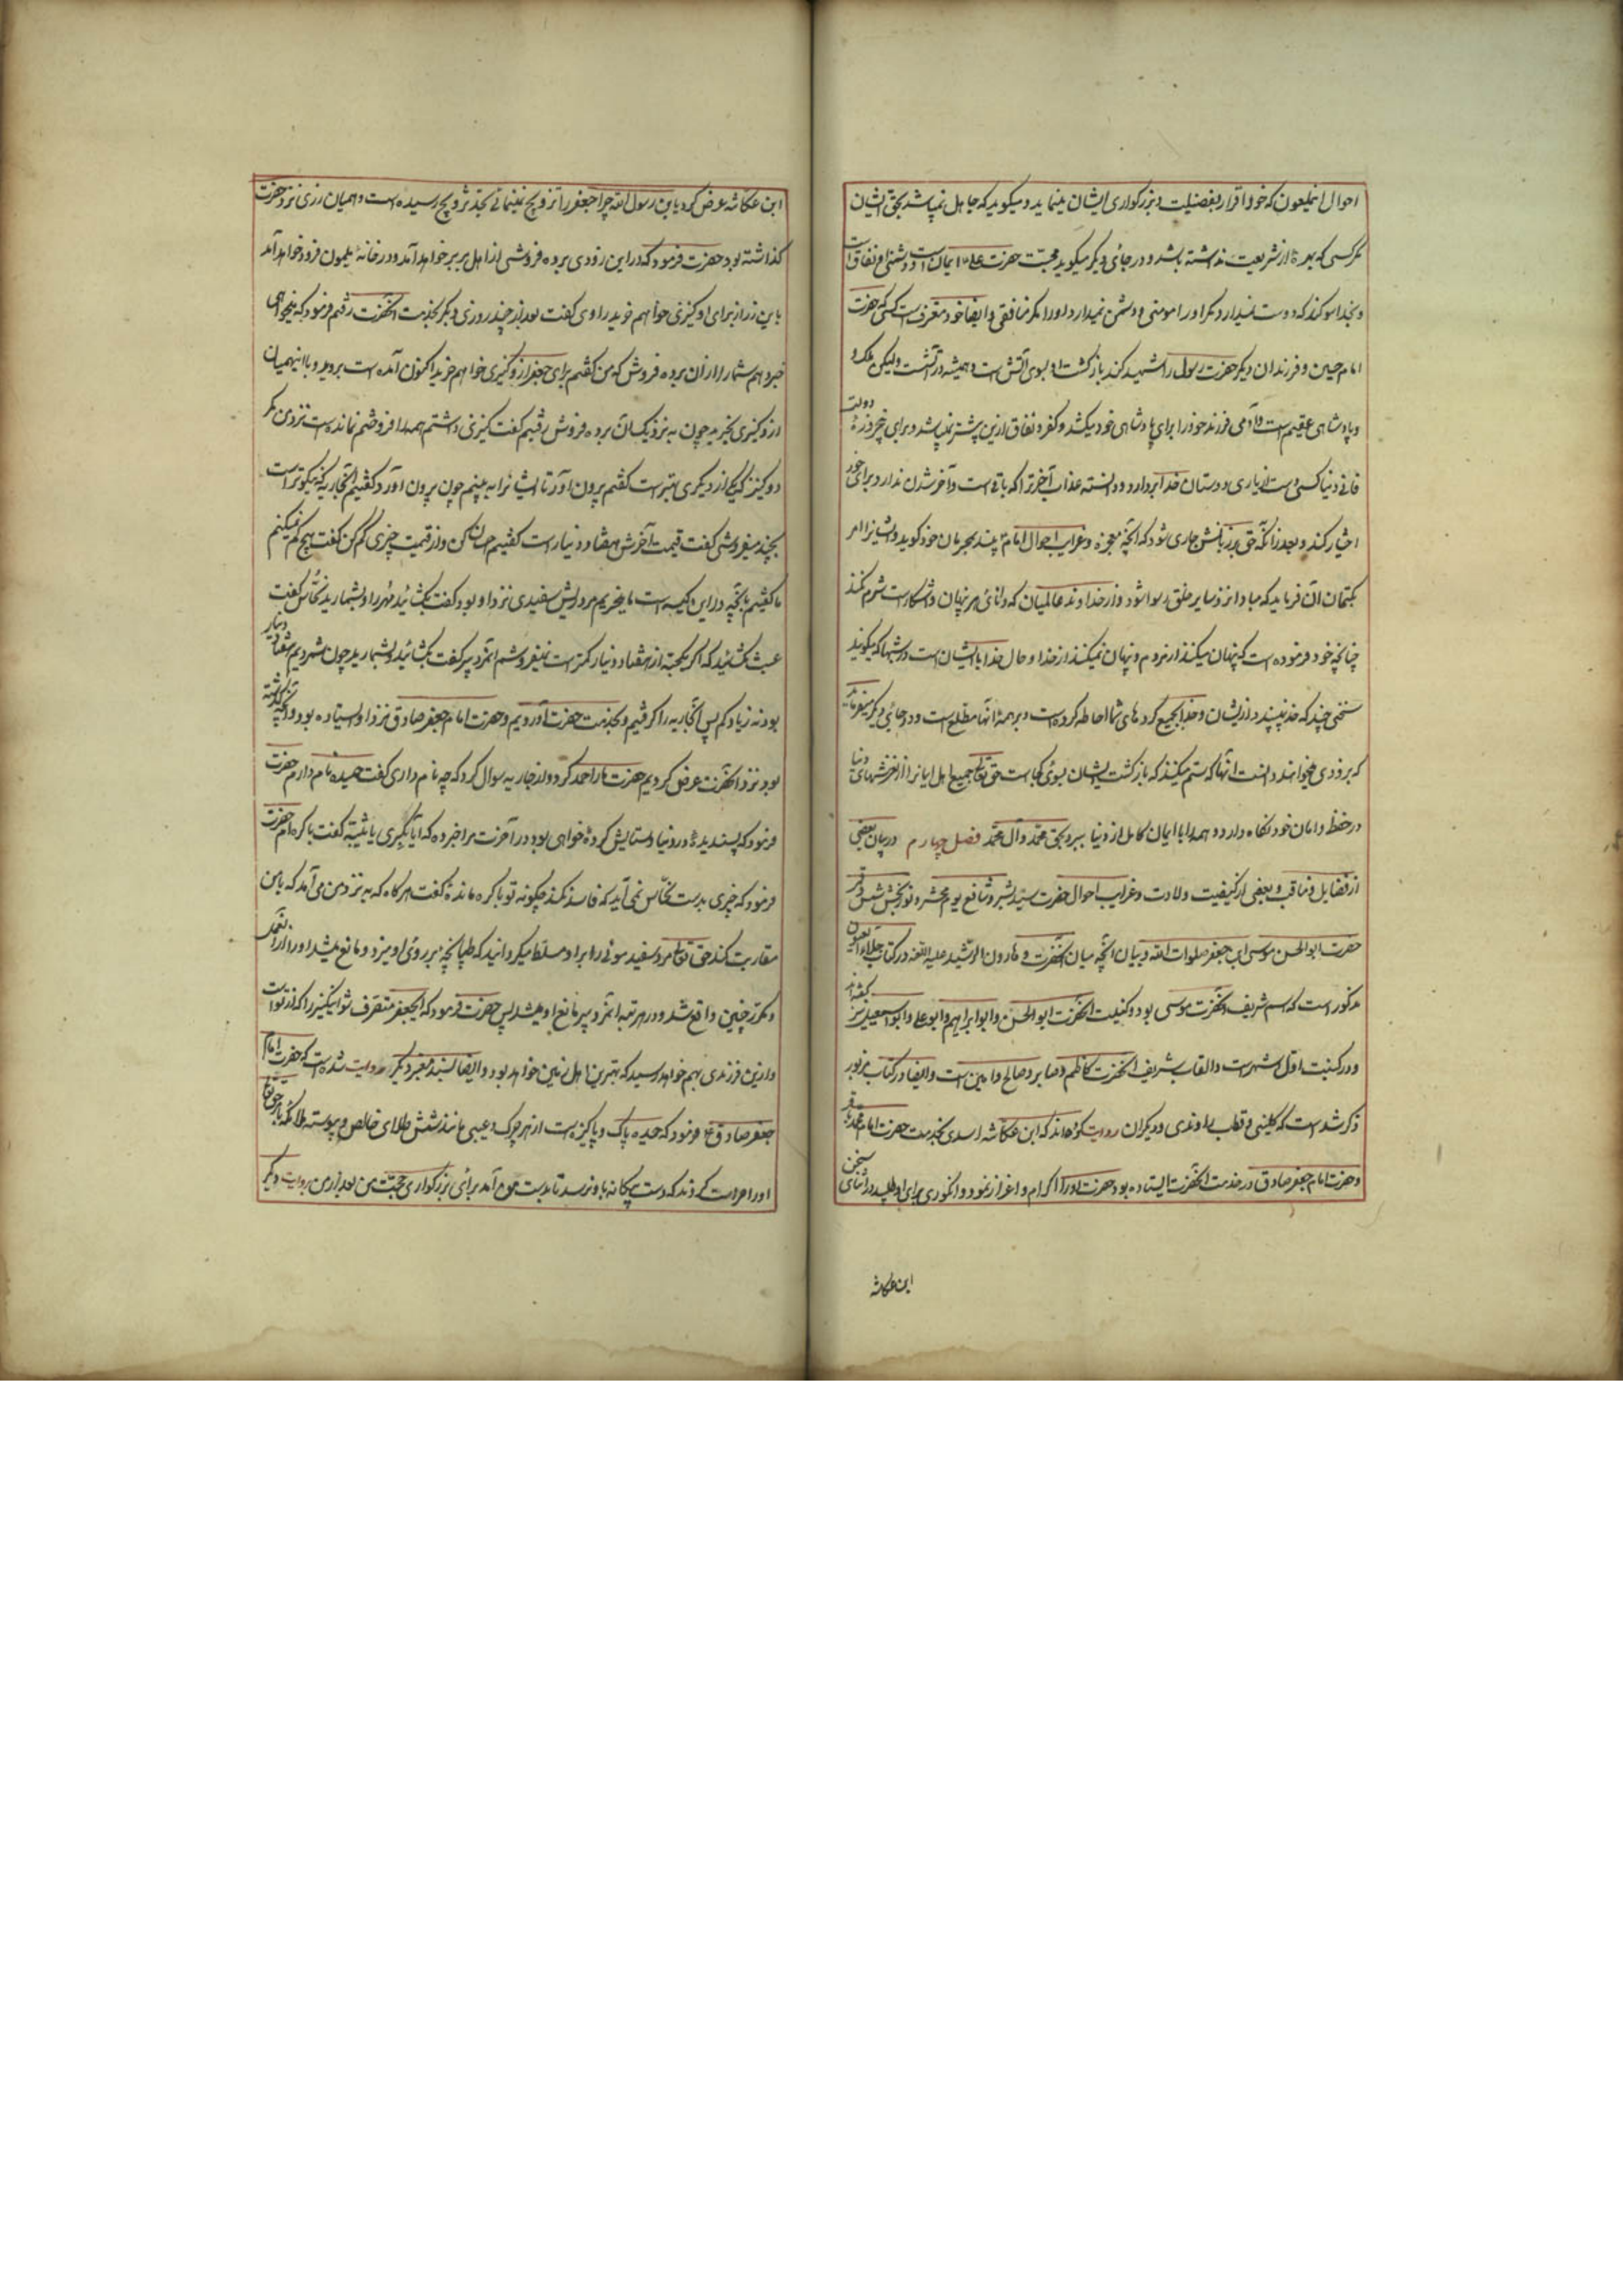 احوال انملعون که خود اقرار بفضیلت و بزرگواری ایشان مینماید و میگوید که جاهل نمیباشد بحق ایشان
مگر کسی که بهرهٔ از شریعت نداشته باشد و در جای دیگر میگوید محبت حضرت علی ایمان است و دشمنی او نفاق است
و بخدا سوگند که دوست نمیدارد مگر او را مومنی و دشمن نمیدارد او را مگر منافقی و ایضا خود معترف است کسی که حضرت
امام حسین و فرزندان دیگر حضرت رسول را شهید کند بازگشت او بسوی آتش است و همیشه در آتشست ولیکن ملک و
و پادشاهی عقیم است و آدمی فرزند خود را برای پادشاهی خود میکشد و کفر و نفاق ازین بیشتر نمیباشد و برای دولت پنج روزهٔ
فانی دنیا کسی دست از یاری دوستان خدا بردارد و دانسته عذاب آخرت را که باقی است و آخر شدن ندارد برای خود
اختیار کند و بعد از آنکه حق بر زبانش جاری شود که آنچه معجزه و غرایب احوال امام بیند بمحرمان خود گوید و ایشانرا امر
بکتمان آن فرماید که مبادا نزد سایر خلق رسوا شود و از خداوند عالمیان که دانای هر نهان و آشکار است شرم نکند
چنانچه خود فرموده است که پنهان میکنند از مردم و پنهان نمیکنند از خدا و حال خدا با ایشان است در شبها که میگویند
سخنی چند که خدا نپسندد از ایشان و خدا بجمیع کردهای شما احاطه کرده است و بر همهٔ آنها مطلع است و در جائی دیگر میفرماید
که بزودی خواهند دانست آنها که ستم میکنند که بازگشت ایشان بسوی کجاست حق تعالی جمیع اهل ایمانرا از لغزشهای دنیا
در حفظ و امان خود نگاه دارد و همه را با ایمان کامل از دنیا ببرد بحق محمد و آل محمد فصل چهارم در بیان بعضی
از فضایل و مناقب و بعضی از کیفیت ولادت و غرایب احوال حضرت سید بشر و شافع یوم محشر و نوربخش شمس و قمر
حضرت ابو الحسن موسی ابن جعفر صلوات الله و بیان آنچه میان آنحضرت و هارون الرشید علیه اللعنه در کتاب جلاء العیون
مذکور است که اسم شریف آنحضرت موسی بود و کنیت آنحضرت ابو الحسن و ابو ابراهیم و ابو علی و ابو اسمعیل نیز گفته اند
و در کنیت اول اشهر است و القاب شریف آنحضرت کاظم و صابر و صالح و امین است و ایضا در کتاب مزبور
ذکر شده است که کلینی و قطب راوندی و دیگران روایت کرده‌اند که ابن عکاشه اسدی بخدمت حضرت امام محمد باقر
و حضرت امام جعفر صادق در خدمت آنحضرت ایستاده بود حضرت او را اکرام و اعزاز نمود و انگوری برای او طلبید در اثنای سخن
ابن عکاشه
ابن عکاشه عرض کرد یا بن رسول الله چرا جعفر را تزویج نمینمائی بحد تزویج رسیده است و همیان زری نزد حضرت
گذاشته بود حضرت فرمود که در این زودی برده فروشی از اهل بربر خواهد آمد و در خانهٔ میمون فرود خواهد آمد
باین زر از برای او کنیزی خواهم خرید راوی گفت بعد از چند روزی دیگر بخدمت آنحضرت رفتم فرمود که میخواهی
خبر دهم شما را از آن برده فروش که من گفتم برای جعفر ازو کنیزی خواهم خرید اکنون آمده است بروید و با این همیان
ازو کنیزی بخرید چون به نزدیک آن برده فروش رفتیم گفت کنیزی داشتم همه را فروختم نمانده است نزد من مگر
دو کنیز که یکی از دیگری بهتر است گفتیم بیرون آور تا ایشانرا به بینیم چون بیرون آورد گفتیم آنجاریه که نیکوتر است
بچند میفروشی گفت قیمت آخرش هفتاد دینار است گفتیم احسان کن و از قیمت چیزی کم کن گفت هیچ کم نمیکنم
ما گفتیم بآنچه در این کیسه است ما میخریم مرد ریش سفیدی نزد او بود گفت بگشائید مهر را و بشمارید نخاس گفت
عبث مگشائید که اگر یکحبه از هفتاد دینار کمتر است نمیفروشم آنمرد پیر گفت بگشائید و بشمارید چون شمردیم هفتاد دینار
بود نه زیاد و نه کم پس آنجاریه را گرفتیم و بخدمت حضرت آوردیم و حضرت امام جعفر صادق نزد او ایستاده بود و آنچه گذشته
بود نزد آنحضرت عرض کردیم حضرت ما را حمد کرد و از جاریه سوال کرد که چه نام داری گفت حمیده نام دارم حضرت
فرمود که پسندیدهٔ در دنیا و ستایش کردهٔ خواهی بود در آخرت مرا خبر ده که آیا بکری یا ثیبه گفت باکره‌ام حضرت
فرمود که چیزی بدست نخاس نمی آید که فاسد نکند چگونه تو باکره ماندهٔ گفت هرگاه که به نزد من می آمد که با من
مقاربت کند حق تعالی مرد سفید موئی را بر او مسلط میگردانید که طپانچه بر روی او میزد و مانع میشد او را از آن عمل
و مکرر چنین واقع شد و در هر مرتبه آنمرد پیر مانع او میشد پس حضرت فرمود که ایجعفر متصرف شو اینکنیز را که از تو است
و ازین فرزندی بهم خواهد رسید که بهترین اهل زمین خواهد بود و ایضا بسند معتبر دیگر روایت شده است که حضرت امام
جعفر صادق ع فرمود که حمیده پاک و پاکیزه است از هر چرک و عیبی مانند شمش طلای خالص و پیوسته ملائکه بامر حق تعالی
او را حراست کردند که دست بیگانه باو نرسد تا بدست من آمد برای بزرگواری حجت من بعد از من روایت دیگر